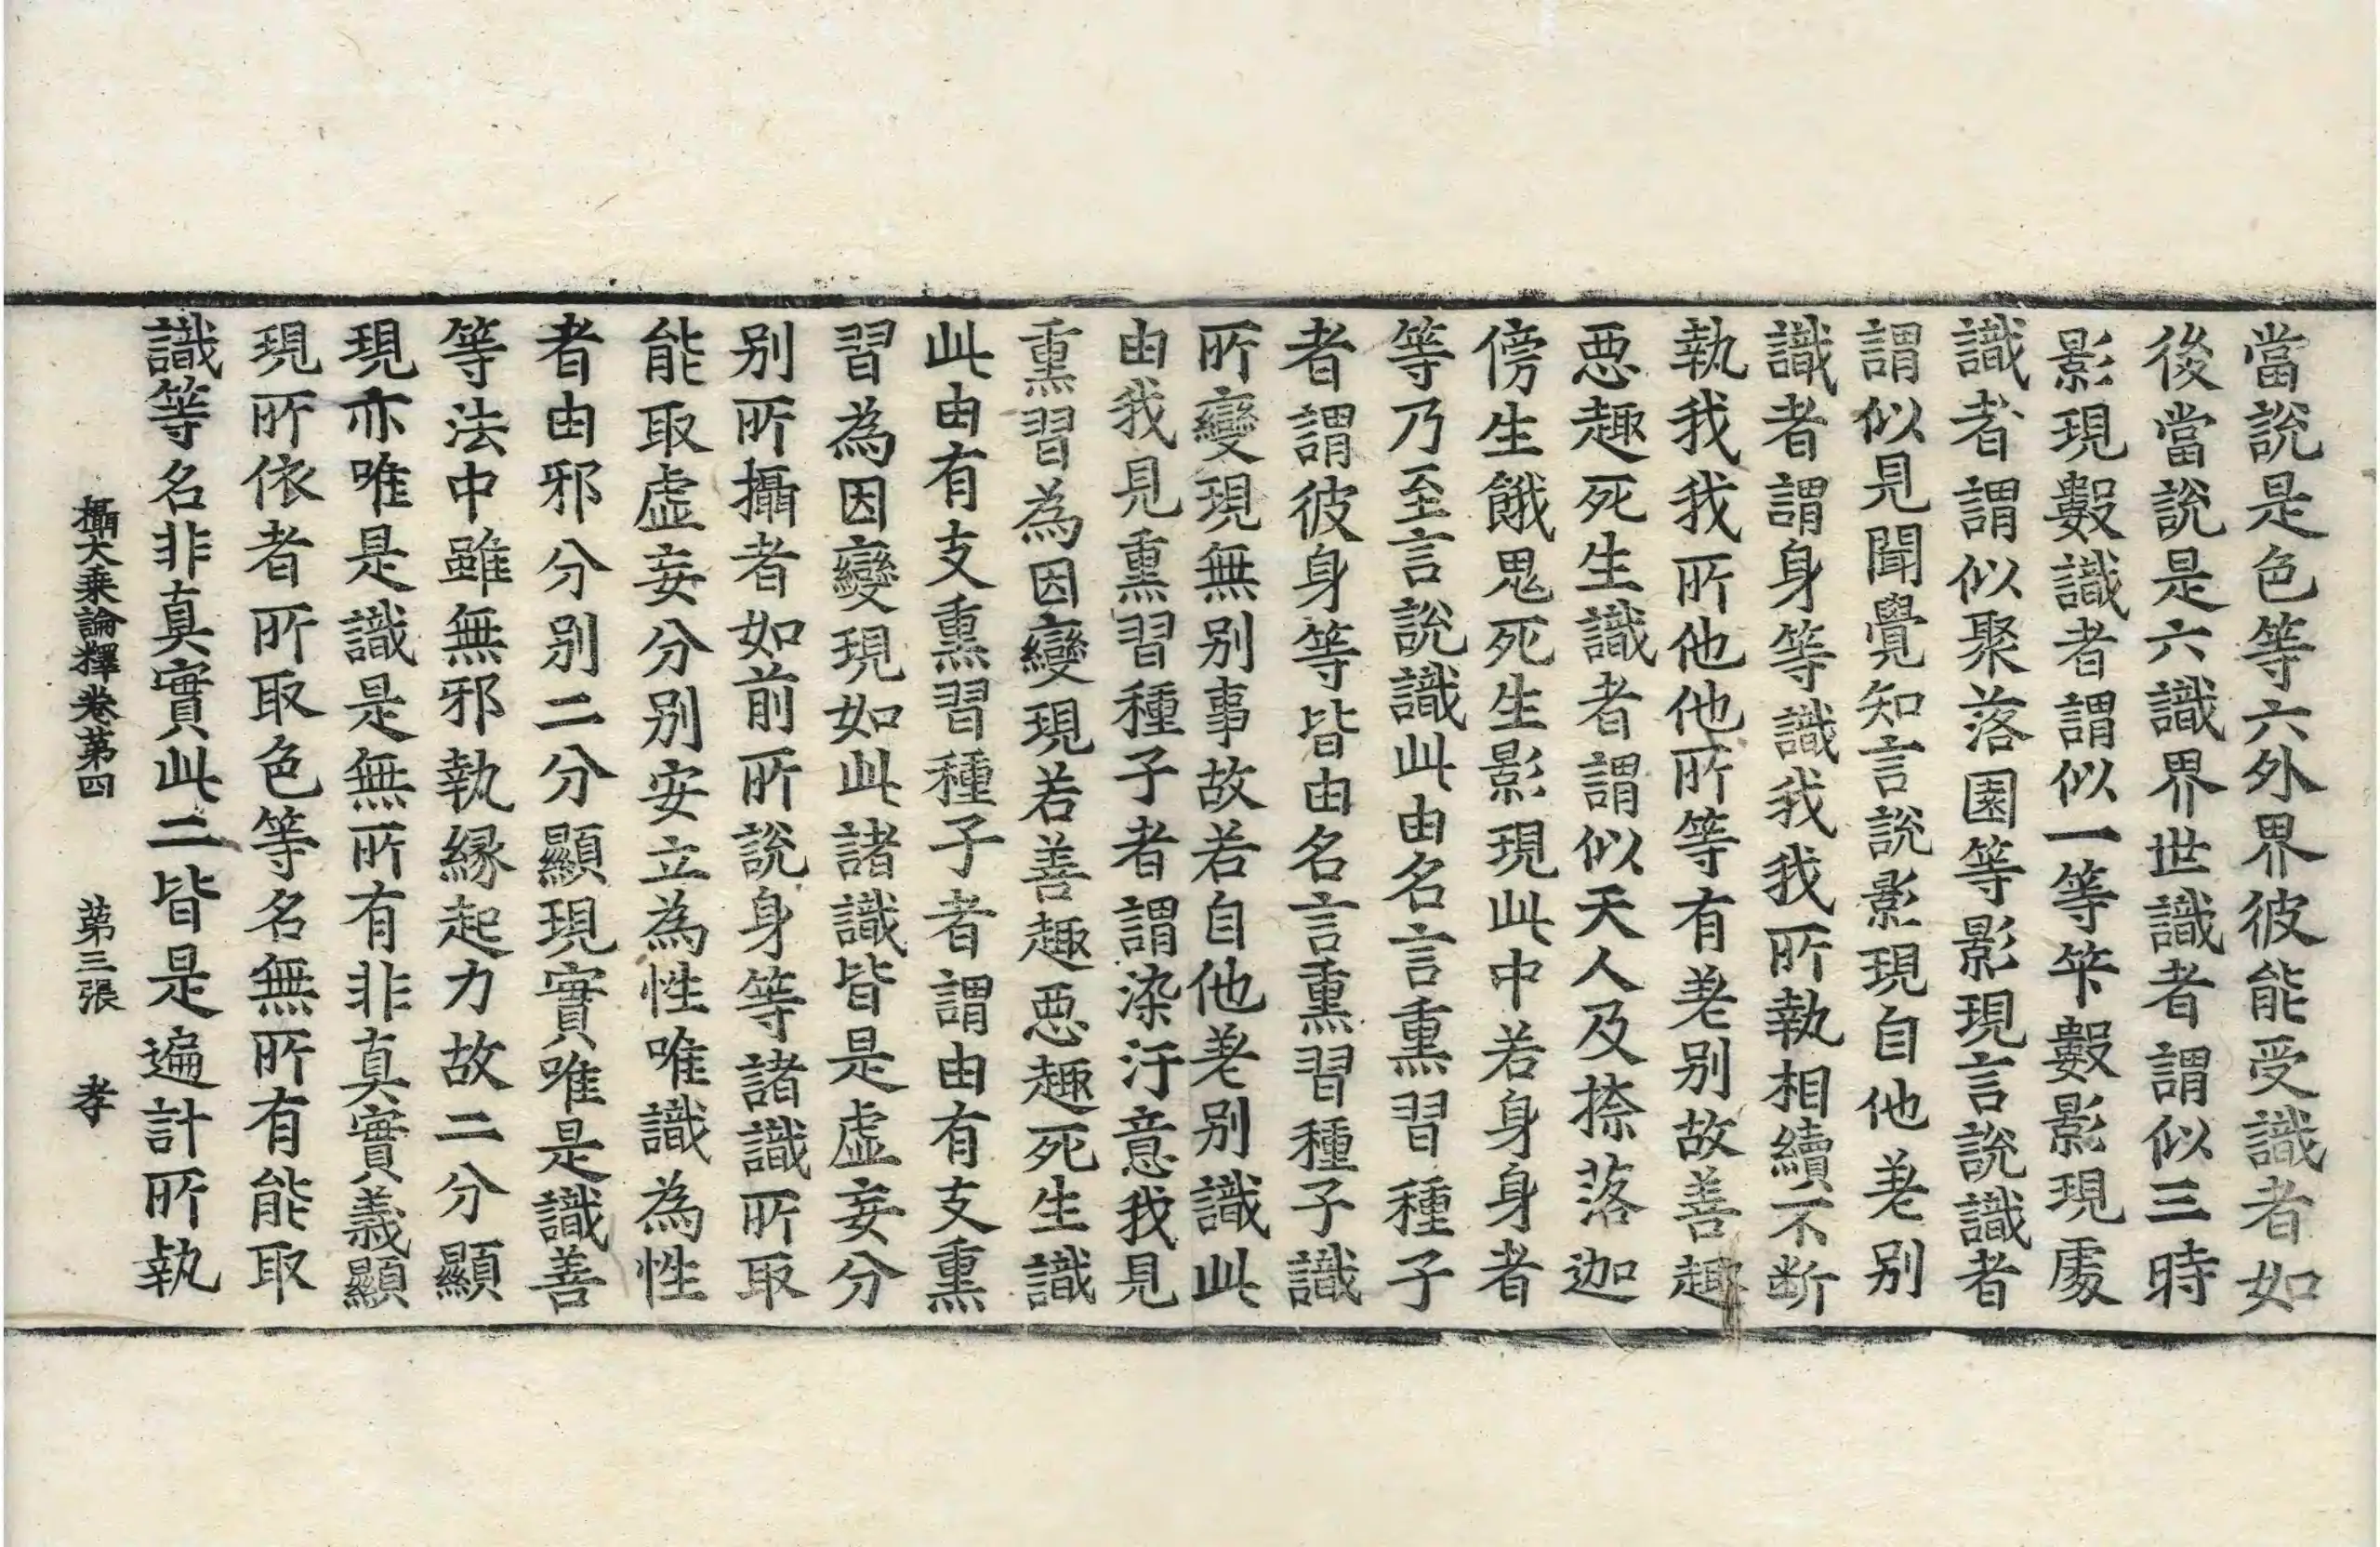 當說是色等六外界彼能受識者如
後當說是六識界世識者謂似三時
影現數識者謂似一等筭數影現處
識者謂似聚落園等影現言說識者
謂似見聞覺知言說影現自他差別
識者謂身等識我我所執相續不斷
執我我所他他所等有差別故善趣
惡趣死生識者謂似天人及捺落迦
傍生餓鬼死生影現此中若身身者
等乃至言說識此由名言熏習種子
者謂彼身等皆由名言熏習種子識
所變現無別事故若自他差別識此
由我見熏習種子者謂染汙意我見
熏習為因變現若善趣惡趣死生識
此由有支熏習種子者謂由有支熏
習為因變現如此諸識皆是虛妄分
別所攝者如前所說身等諸識所取
能取虛妄分別安立為性唯識為性
者由邪分別二分顯現實唯是識善
等法中雖無邪執緣起力故二分顯
現亦唯是識是無所有非真實義顯
現所依者所取色等名無所有能取
識等名非真實此二皆是遍計所執
攝大乘論釋卷第四 第三張 孝